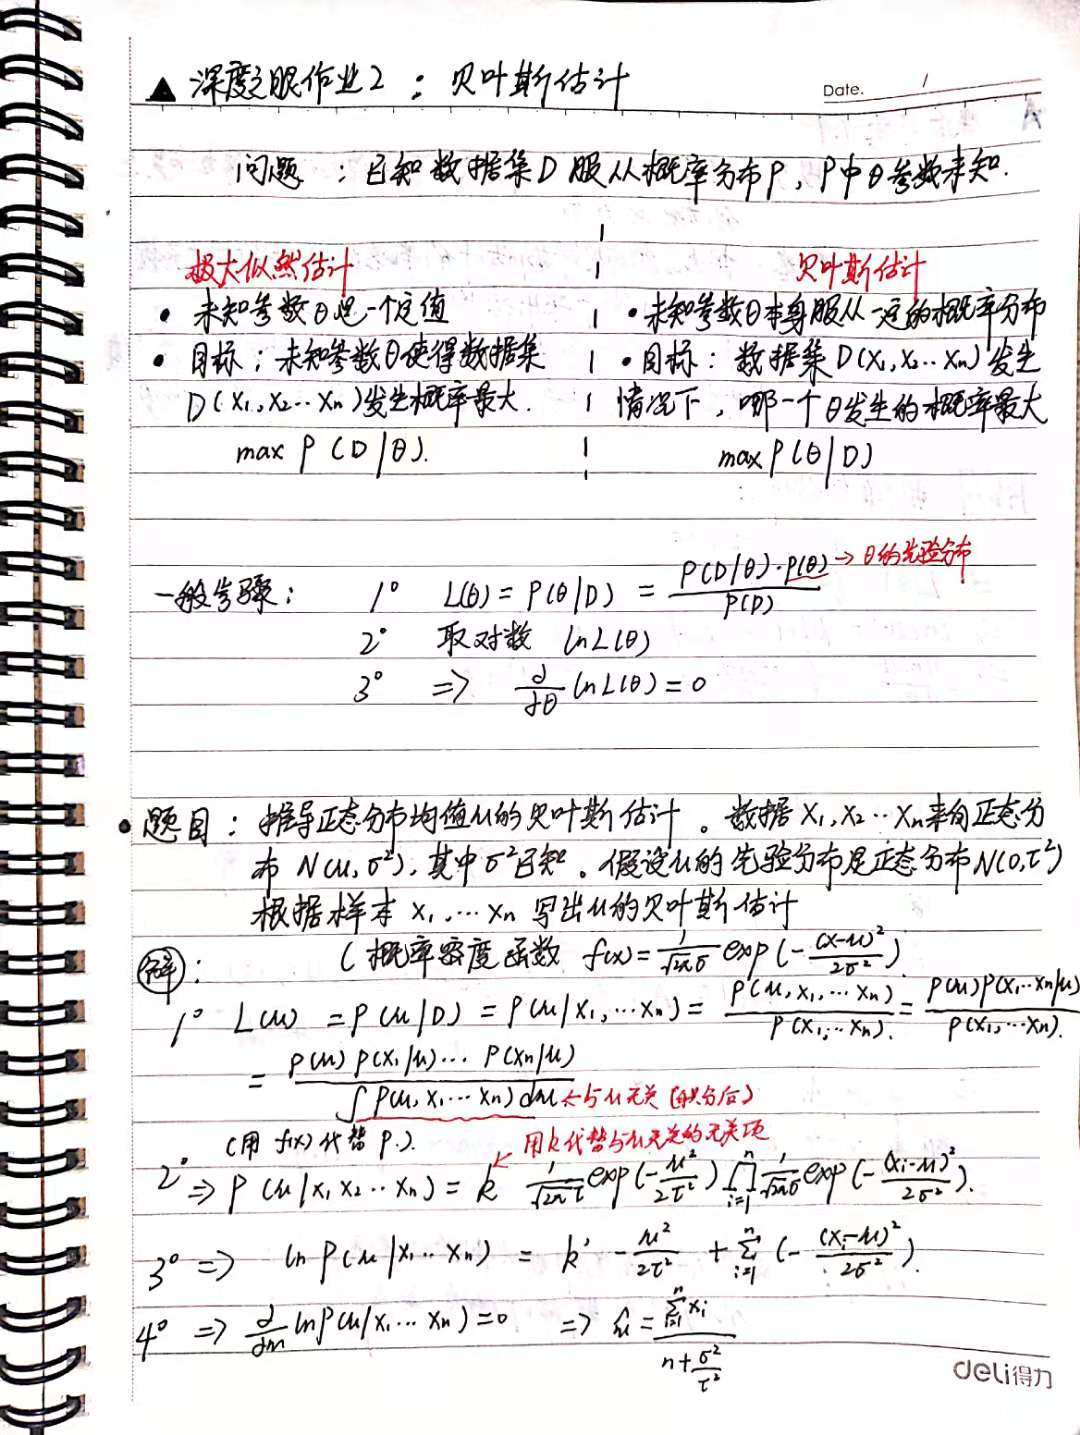 ▲ 深度之眼作业2：贝叶斯估计
Date. /
问题：已知数据集D服从概率分布P，P中θ参数未知.
极大似然估计
• 未知参数θ是一个定值
• 目标：未知参数θ使得数据集
D(X₁,X₂…Xn)发生概率最大.
max P(D|θ).
贝叶斯估计
• 未知参数θ本身服从一定的概率分布
• 目标：数据集D(X₁,X₂…Xn)发生
情况下，哪一个θ发生的概率最大
max P(θ|D)
一般步骤： 1° L(θ) = P(θ|D) = P(D|θ)·P(θ) / P(D) → θ的先验分布
2° 取对数 lnL(θ)
3° => ∂/∂θ lnL(θ) = 0
• 题目：推导正态分布均值μ的贝叶斯估计。数据X₁,X₂…Xn来自正态分
布N(μ,σ²),其中σ²已知。假设μ的先验分布是正态分布N(0,τ²)
根据样本X₁,…Xn写出μ的贝叶斯估计
解： (概率密度函数 f(x) = 1/√2πσ exp(-(x-μ)²/2σ²)
1° L(μ) = P(μ|D) = P(μ|X₁,…Xn) = P(μ,X₁,…Xn) / P(X₁,…Xn). = P(μ)P(X₁…Xn|μ) / P(X₁,…Xn).
= P(μ)P(X₁|μ)… P(Xn|μ) / ∫P(μ,X₁…Xn)dμ ← 与μ无关(积分后)
(用f(x)代替P.). 用k代替与μ无关的无关项
2° => P(μ|X₁X₂…Xn) = k 1/√2πτ exp(-μ²/2τ²) ∏ⁿᵢ₌₁ 1/√2πσ exp(-(Xi-μ)²/2σ²).
3° => lnP(μ|X₁…Xn) = k' - μ²/2τ² + Σⁿᵢ₌₁ (-(Xi-μ)²/2σ²).
4° => ∂/∂μ lnP(μ|X₁…Xn) = 0 => μ̂ = Σⁿᵢ₌₁ Xi / (n + σ²/τ²)
deli得力